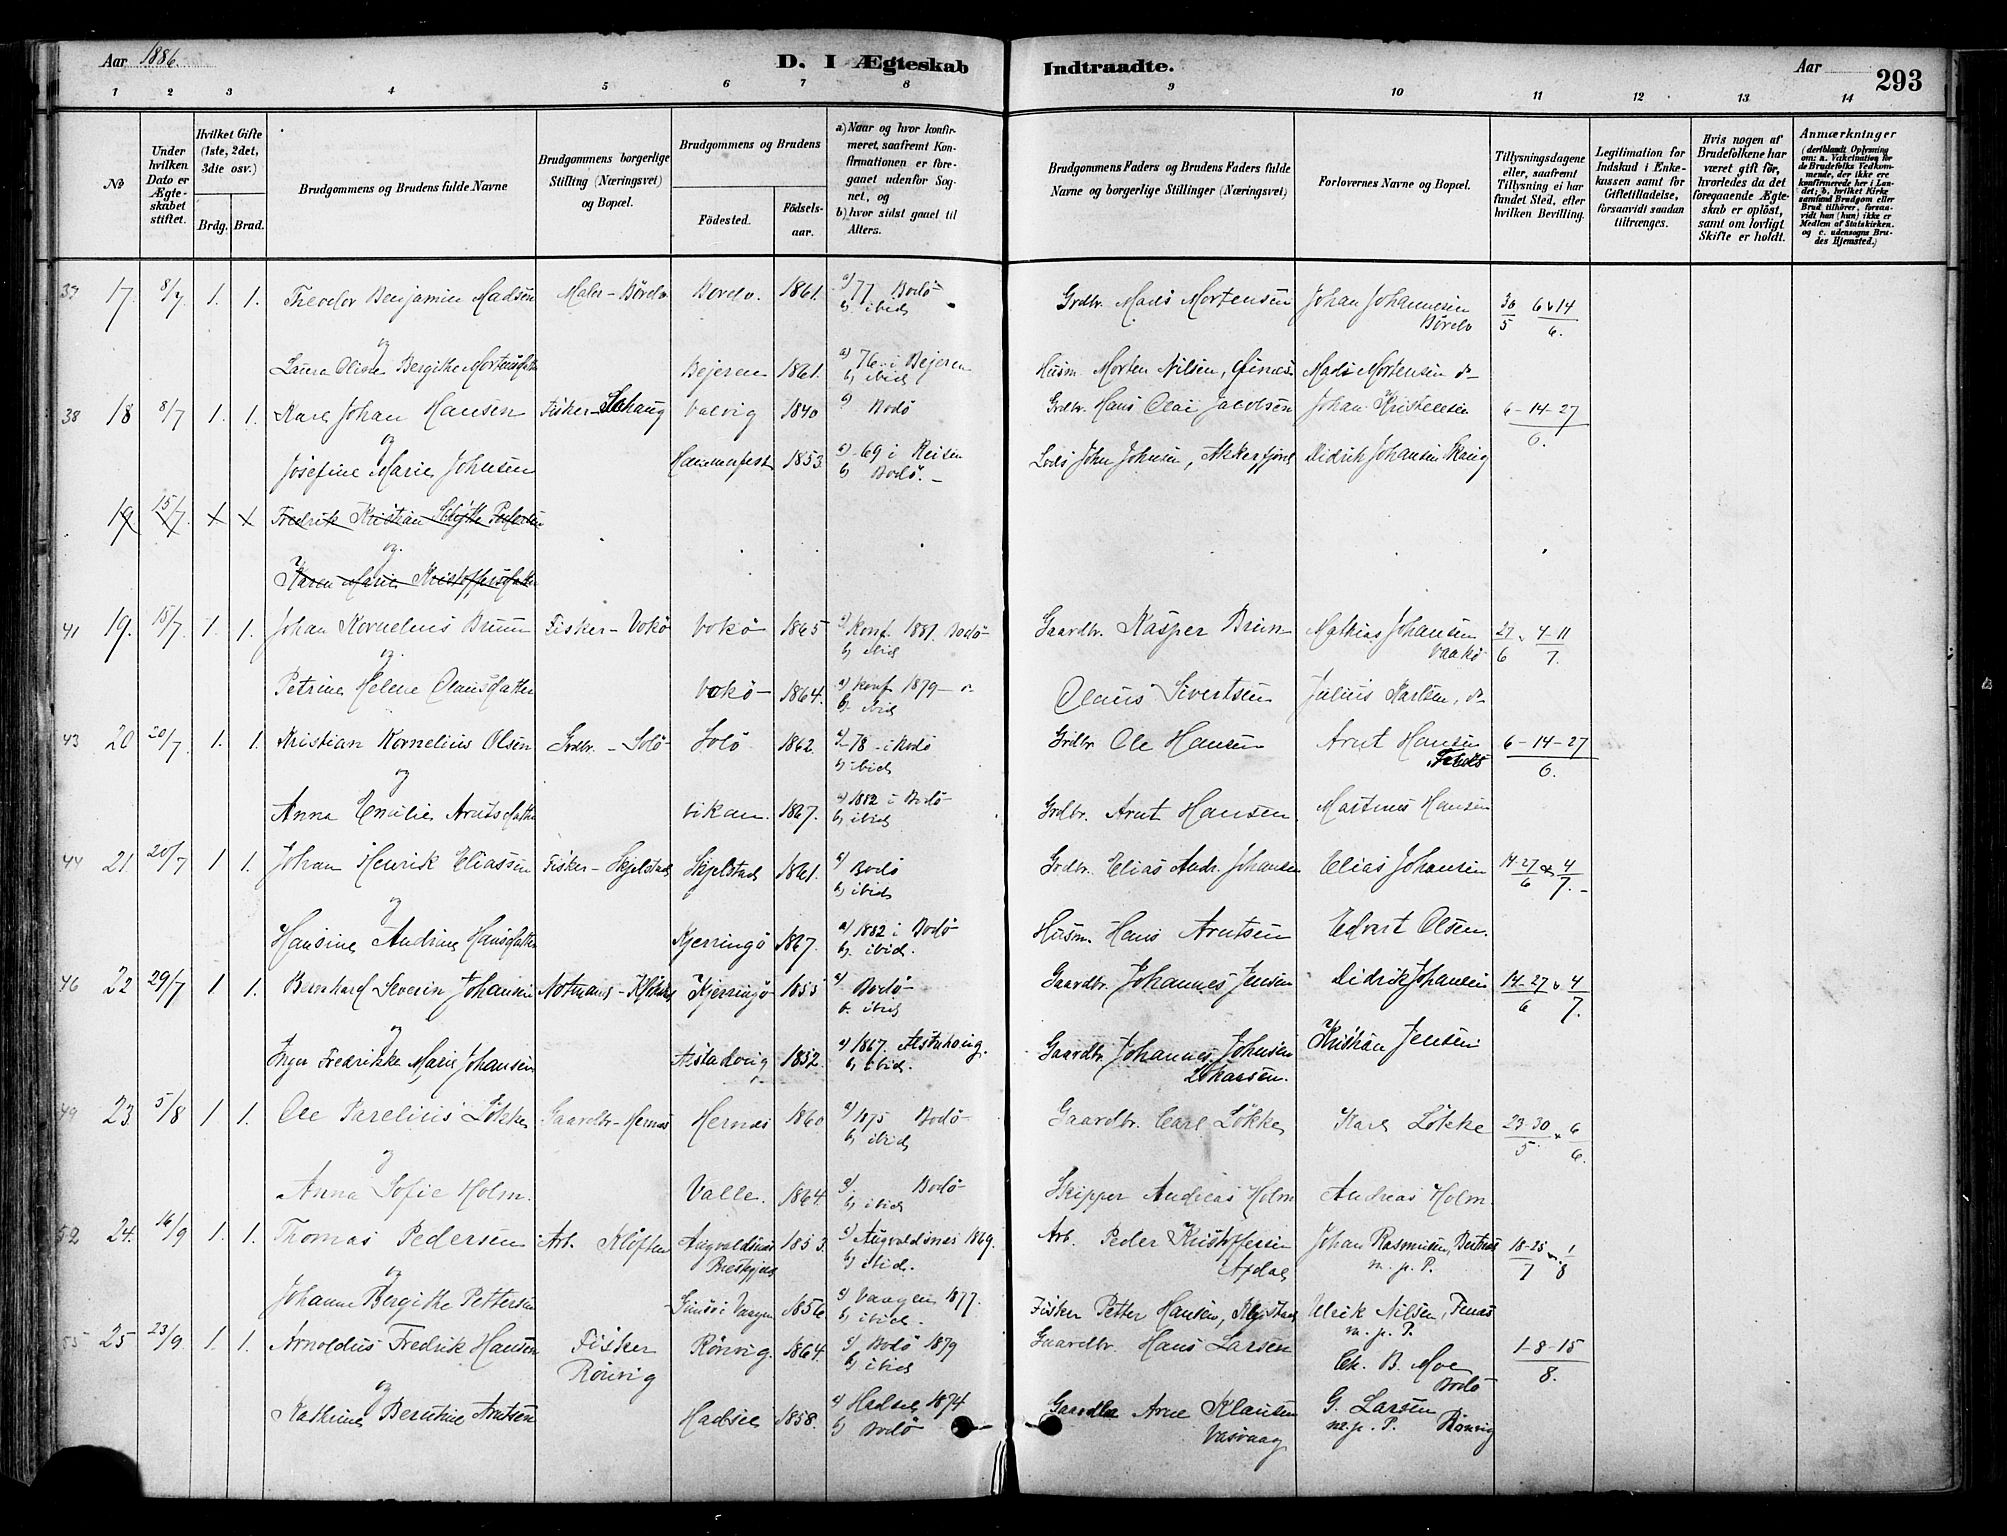 Aar 1886.
D. I Ægteskab Indtraadte.
Aar
293
1 2 3 4 5 6 7 8 9 10 11 12 13 14
No
Under hvilken Dato er Ægteskabet stiftet.
Hvilket Gifte (1ste, 2det, 3die osv.)
Brdg. Brud.
Brudgommens og Brudens fulde Navne
Brudgommens borgerlige Stilling (Næringsvei) og Bopæl.
Brudgommens og Brudens
Fødested.
Fødselsaar.
a) Naar og hvor konfirmeret, saafremt Konfirmationen er foregaaet udenfor Sognet, og
b) hvor sidst gaaet til Alters.
Brudgommens Faders og Brudens Faders fulde Navne og borgerlige Stillinger (Næringsvei)
Forlovernes Navne og Bopæl.
Tillysningsdagene eller, saafremt Tillysning ei har fundet Sted, efter hvilken Bevilling.
Legitimation for Indskud i Enkekassen samt for Giftetilladelse, forsaavidt saadan tiltrænges.
Hvis nogen af Brudefolkene har været gift før, hvorledes da det foregaaende Ægteskab er opløst, samt om lovligt Skifte er holdt.
Anmærkninger (deriblandt Oplysning om: a. Vakcination for de Brudefolks Vedkommende, der ikke ere konfirmerede her i Landet; b. hvilket Kirkesamfund Brudgom eller Brud tilhører, forsaavidt han (hun) ikke er Medlem af Statskirken. og c. udensogns Brudes Hjemsted.)
37 17. 8/7 1. 1. Theodor Benjamin Madsen Maler - Bördø Bördø. 1861. a) 77 Bodö Grdbr. Mads Mortensen Johan Johannesen 30/5 6 & 14/6.
b) ibid
og
Laura Oline Bergithe Mortensdatter Bejeren 1861. a) 76 i Bejeren Husm. Morten Nilsen, Mads Mortensen do
b) ibid
38 18 8/7 1. 1. Karl Johan Hansen Fisker - Skaug Valvig 1840 a) Bodö Grdbr. Hans Olai Jacobsen Johan Kristensen 6-14-27/6.
og
Josefine Marie Johnsen Hammerfest 1853. a) -69 i Reisen Lods John Johnsen, Akkerfjord Didrik Johansen Skaug
b) Bodö. -
19 15/7. Fredrik Kristian Schytte Pedersen
og
Karen Marie Kristoffersdatter
41 19. 15/7. 1. 1. Johan Kornelius Bruun Fisker - Vokö Vokö 1865 a) Konf. 1881. Bodö Gaardbr. Kasper Brun Mathias Johansen Vaakö 27/6 & 4-11/7.
b) ibid
og
Petrine Helene Olausdatter Vokö - 1864. a) Konf 1879 - Olaus Sivertsen Julius Karlsen, do
b) ibid
43 20 20/7. 1. 1. Kristian Kornelius Olsen Grdbr. - Solö Solö 1862 a) -78 - i Bodö Grdbr Ole Hansen Arnt Hansen 6-14-27/6.
b) ibid
og
Anna Emilie Arntsdatter Vikan. 1867. a) 1882 i Bodö Grdbr. Arnt Hansen. Martinus Hansen
b) ibid
44 21. 20/7 1 1. Johan Henrik Eliassen Fisker - Skjelstad Skjelstad 1861. a) Bodö Grdbr. Elias Andr. Johansen Elias Johansen 14-27/6 & 4/7. -
b) ibid
og
Hansine Andrine Hansdatter Kjerringö 1867. a) 1882 i Bodö Husm. Hans Arntsen Edvert Olsen.
b) ibid.
46 22 29/7 1 1. Bernhard Severin Johansen Notmand - Kjerringö 1855 a) Bodö Gaardbr. Johannes Jensen Didrik Johansen 14-27/6 & 4/7.
b. ibid
og
Inger Fredrikke Marie Johansen Alstadvig 1852. a) 1867. Alstahoug. Gaardbr. Johannes Johnsen Kristian Jensen
b) ibid.
49 23. 5/8 1 1. Ole Parelius Løkke Gaardbr - Hernæs Hernæs 1860 a) 1875 Bodö Gaardbr. Carl Løkke Karl Løkke 23-30/5 & 6/6.
b) ibid
og
Anna Sofie Holm. Valle. 1864. a) Bodö Skipper Andreas Holm Andreas Holm.
b) ibid
52 24. 16/9 1. 1. Thomas Pedersen Arb. Kløften Augvaldsnæs Prestgjeld 1853. a) Augvaldsnæs 1869. Arb. Peder Kristoffersen Johan Rasmussen, Bertnæs 18-25/7 & 1/8
b) ibid. m. p. P.
og
Johanne Bergithe Pettersen Gimsö i Vaagen 1856. a) Vaagen 1877. Fisker Petter Hansen, Ulrik Nilsen,
b) ibid. m. p. P.
55 25 23/9. 1. 1. Arnoldus Fredrik Hansen Fisker Rönvig Rönvig. 1864. a) Bodö 1879 Gaardbr. Hans Larsen Ch. B. Moe Bodö 1-8-15/8.
b) ibid
og
Kathrine Berntine Arntsen Hadsel 1858. a) Hadsel 1874 Gaardbr Arne Klausen G. Larsen
b) Bodö Vasvaag m. p. P. Rönvig